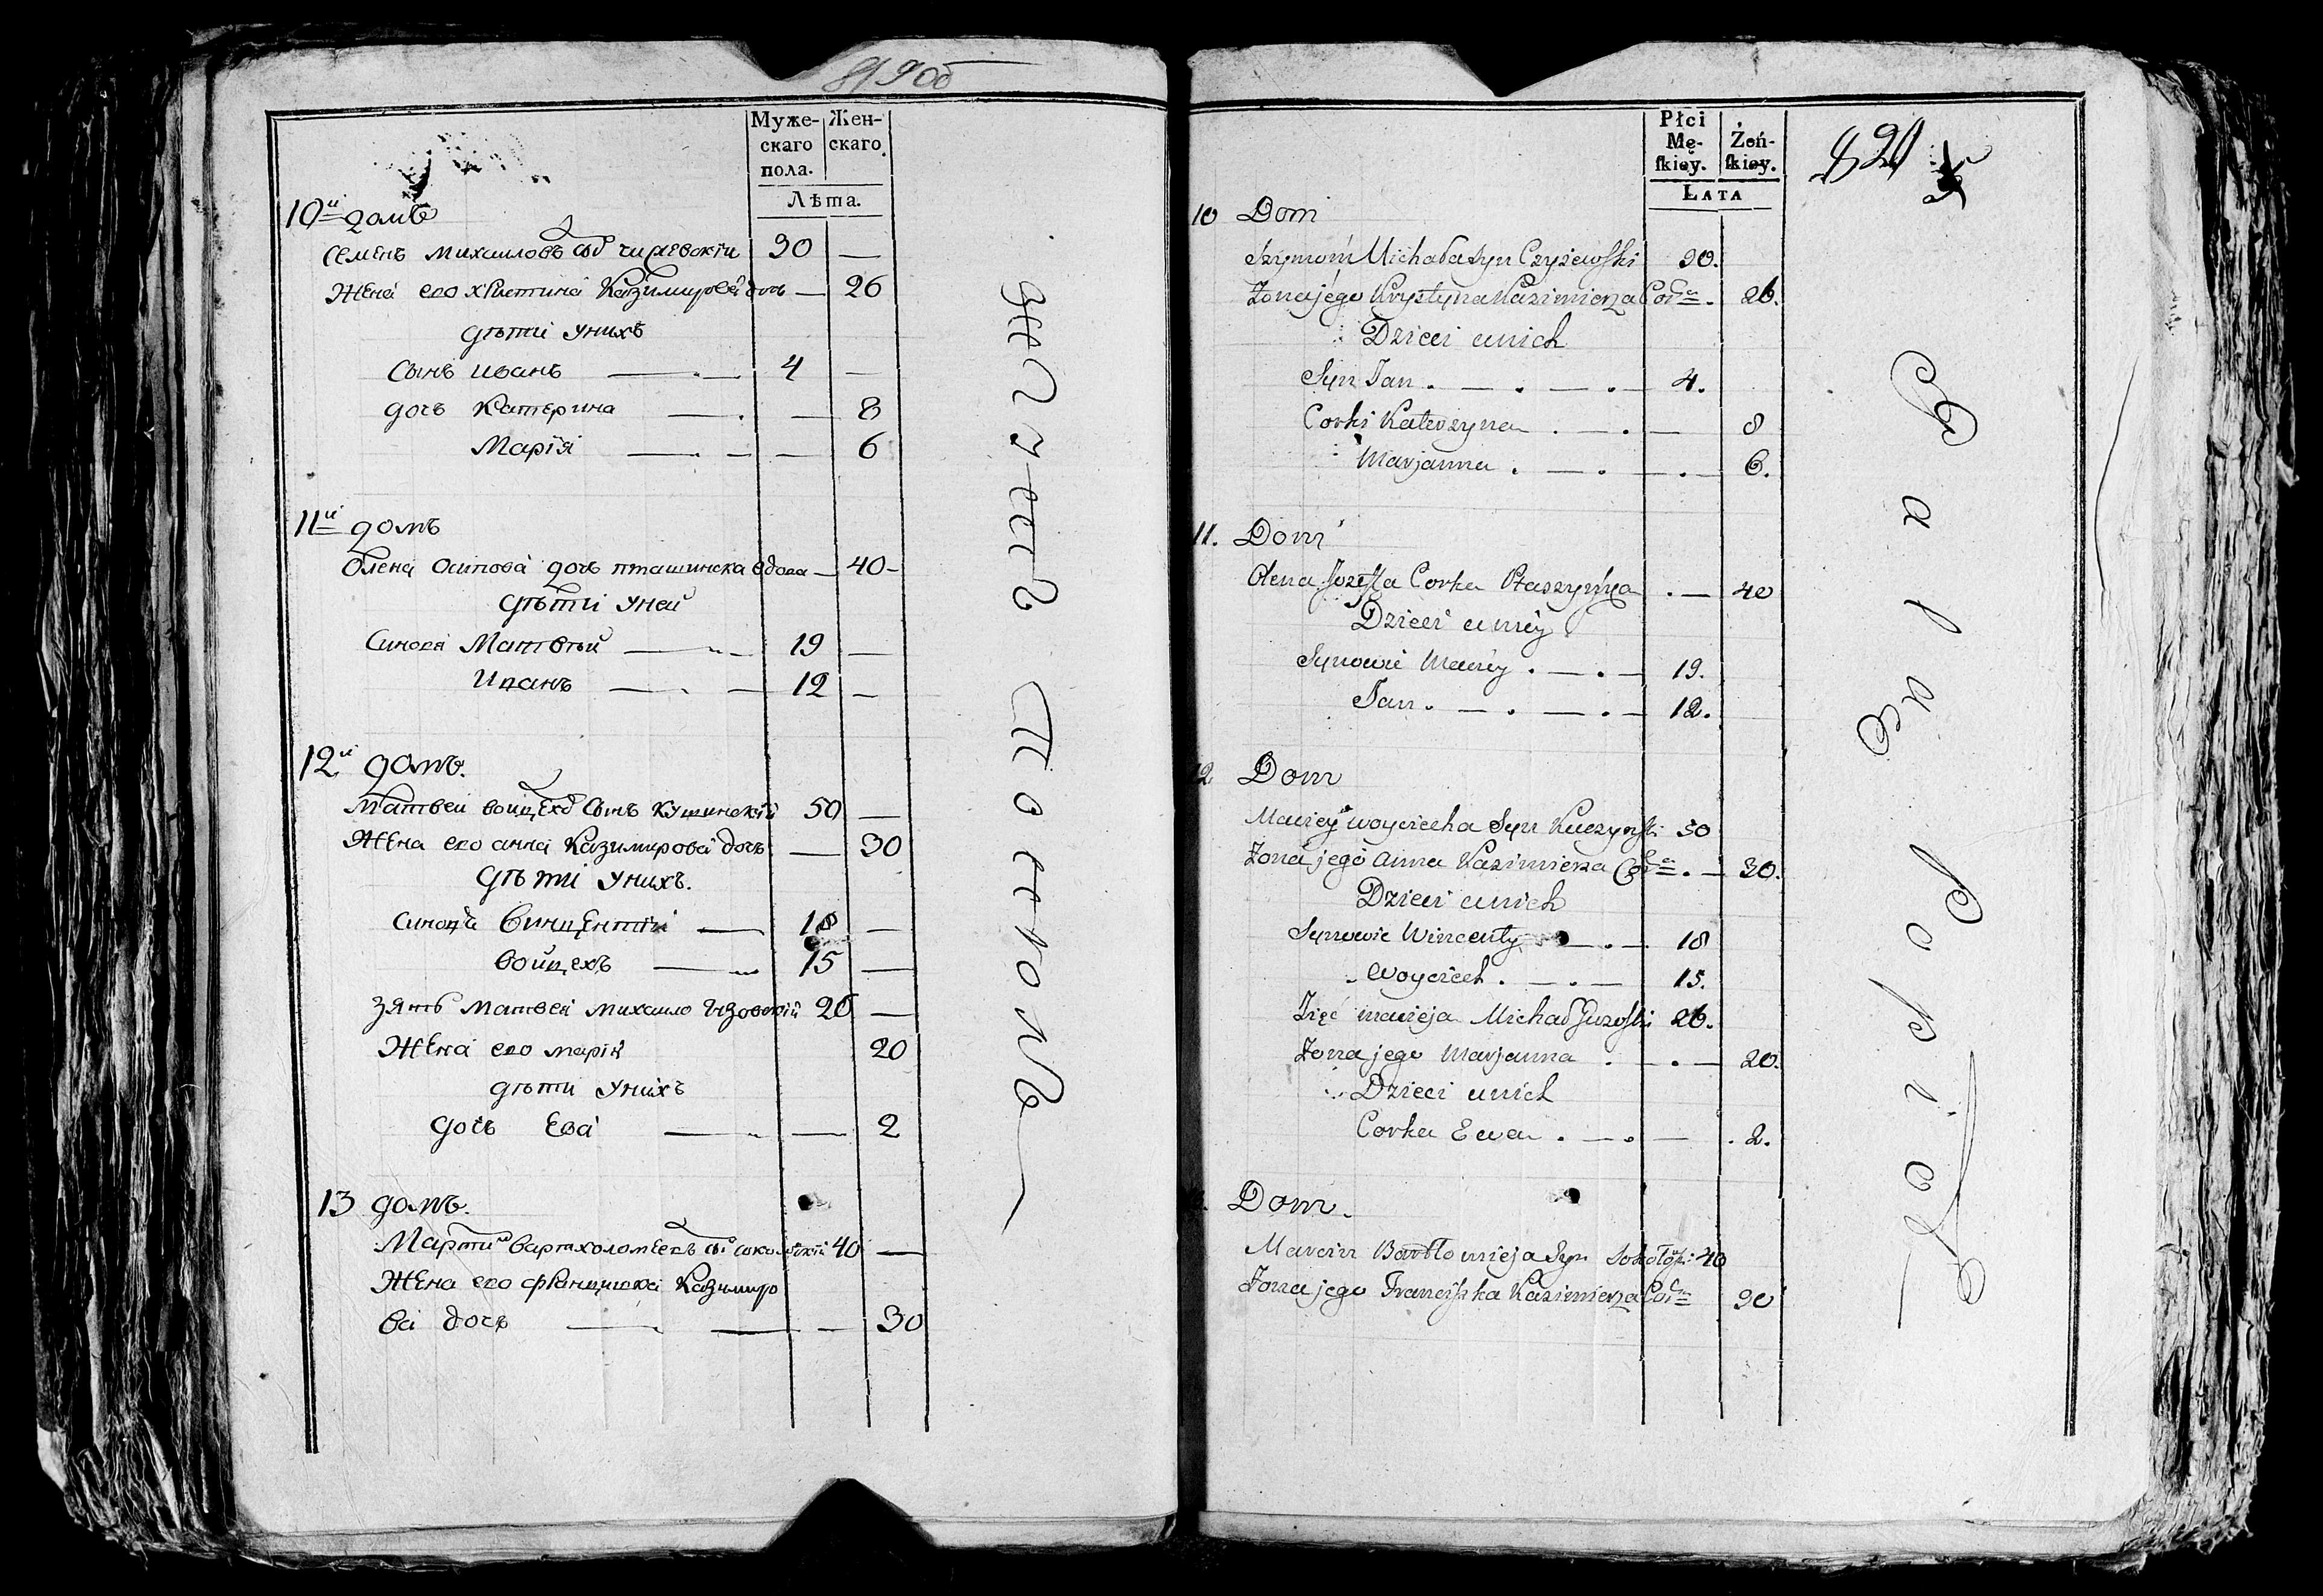 819 об
Муже-
скаго
пола.
Жен-
скаго.
Лѣта.
10й домъ
Семенъ Михаиловъ сынъ Чижевскiи 30 —
Жена его Христина Казимирова дочь — 26
дѣти у нихъ
Сынъ Иванъ — 4 —
дочь Катерина — — 8
Марiя — — 6
11й домъ
Олена Осипова дочь Пташинска вдова — 40 -
дѣти у ней
Синовя Матвѣй — 19 —
Иванъ — 12 —
12й домъ.
Матвеи Войцехо сынъ Кушинскiй 50 —
Жена его Анна Казимирова дочь — 30
дѣти у нихъ.
Винцентiй — 18 —
Войцехъ — 15 —
Зять Матвея Михаило 26 —
Жена его Марiя 20
дѣти у нихъ
дочь Ева — — 2
13 домъ.
Мартинъ Вартхоломеевъ 40 —
Жена его Францишка Казимиро
ва дочь — — — 30
Płci
Mę-
ſkiey.
Żeń-
ſkiey.
Lata
820
10 Dom
Szymoń Michała Syn Czyżewski 30.
Żona jego Krystyna Kazimierza Corka. 26.
Dzieci u nich
Syn Jan . — . — . — 4.
Corki Katrzyna . — . — 8
Marjanna . — . — . — 6.
11. Dom
Olena Jozefa Corka Ptaszyńska . — 40
Dzieci u niey
Synowie Maciey . — . — 19.
Jan . — . — . — 12.
12 Dom
Maciey Woyciecha Syn Kuczynski 50
Żona jego Anna Kazimierza Corka . — 30.
Dzieci u nich
Synowie Wincenty — . — 18
Woyciech . — . — 15.
Zięć Macieja Michał Guzoſki 26.
Żona jego Marjanna . — . — 20.
Dzieci u nich
Corka Ewa . — . — . 2.
Dom.
Marcin Bartłomieja Syn Sokołoſki 40
Żona jego Franciſzka Kazimierza Corka 30